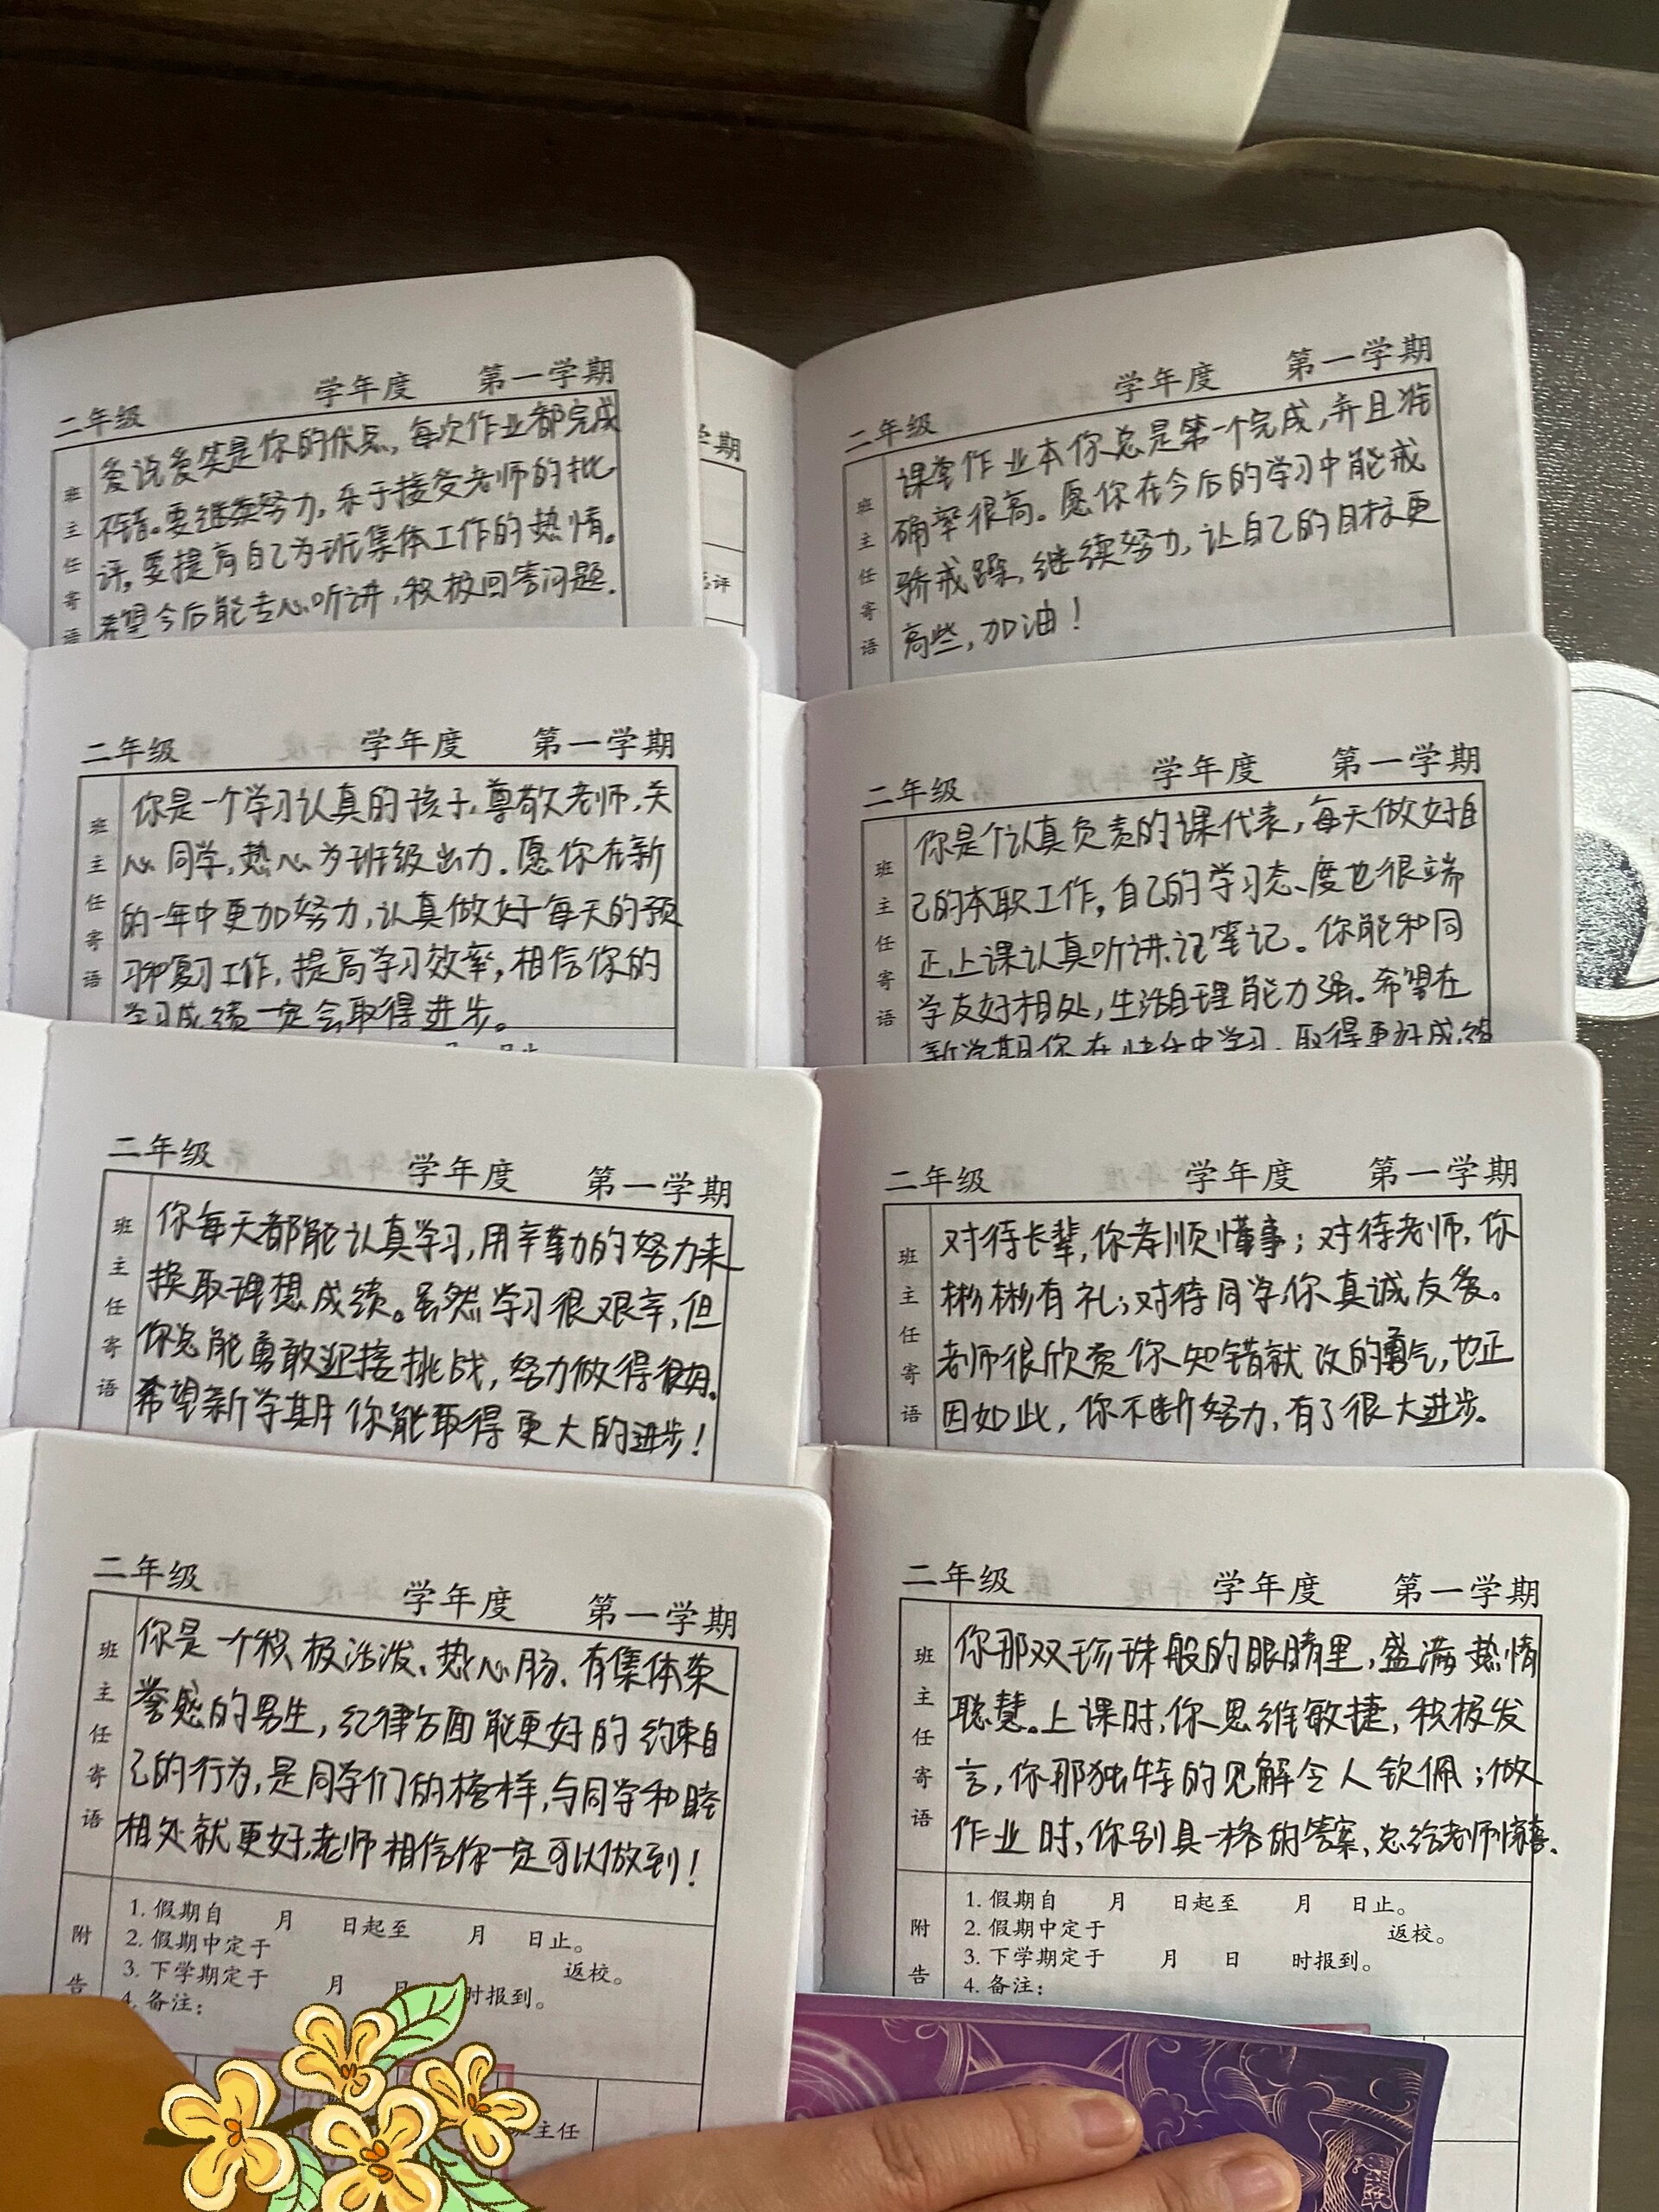 二年级 学年度 第一学期
班主任寄语
爱说爱笑是你的优点,每次作业都完成
不错。要继续努力,乐于接受老师的批
评,要提高自己为班集体工作的热情。
希望今后能专心听讲,积极回答问题.
学期
总评
二年级 学年度 第一学期
班主任寄语
课堂作业本你总是第一个完成,并且准
确率很高。愿你在今后的学习中能戒
骄戒躁,继续努力,让自己的目标更
高些,加油!
二年级 学年度 第一学期
班主任寄语
你是一个学习认真的孩子,尊敬老师,关
心同学,热心为班级出力.愿你在新
的一年中更加努力,认真做好每天的预
习和复习工作,提高学习效率,相信你的
学习成绩一定会取得进步。
二年级 学年度 第一学期
班主任寄语
你是个认真负责的课代表,每天做好自
己的本职工作,自己的学习态度也很端
正,上课认真听讲、记笔记。你能和同
学友好相处,生活自理能力强。希望在
新学期你在快乐中学习,取得更好成绩
二年级 学年度 第一学期
班主任寄语
你每天都能认真学习,用辛勤的努力来
换取理想成绩。虽然学习很艰辛,但
你总能勇敢迎接挑战,努力做得很好.
希望新学期你能取得更大的进步!
二年级 学年度 第一学期
班主任寄语
对待长辈,你孝顺懂事;对待老师,你
彬彬有礼;对待同学,你真诚友爱。
老师很欣赏你知错就改的勇气,也正
因如此,你不断努力,有了很大进步。
二年级 学年度 第一学期
班主任寄语
你是一个积极活泼、热心肠、有集体荣
誉感的男生,纪律方面能更好的约束自
己的行为,是同学们的榜样,与同学和睦
相处就更好,老师相信你一定可以做到!
附告
1. 假期自 月 日起至 月 日止。
2. 假期中定于 返校。
3. 下学期定于 月 日 时报到。
4. 备注:
主任
二年级 学年度 第一学期
班主任寄语
你那双珍珠般的眼睛里,盛满热情
聪慧。上课时,你思维敏捷,积极发
言,你那独特的见解令人钦佩;做
作业时,你别具一格的答案,总给老师惊喜.
附告
1. 假期自 月 日起至 月 日止。
2. 假期中定于 返校。
3. 下学期定于 月 日 时报到。
4. 备注: